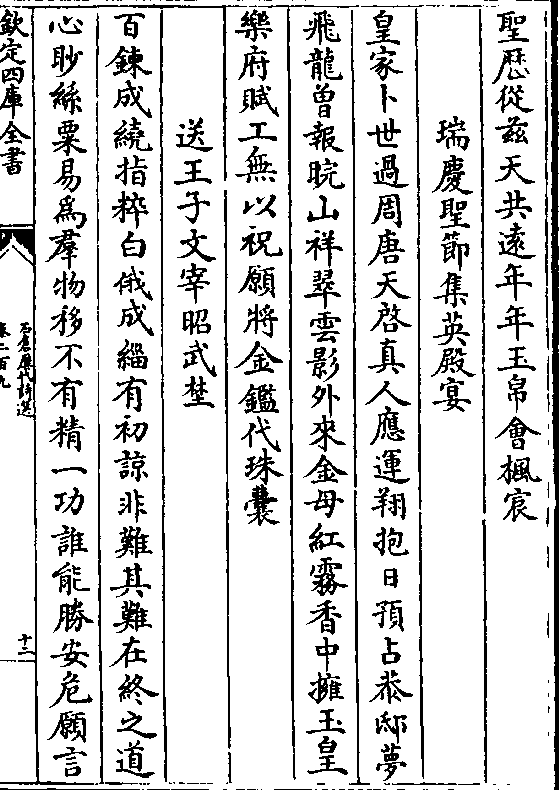 聖歷從兹天共遠年年玉帛會楓宸
瑞慶聖節集英殿宴
皇家卜世過周唐天啓真人應運翔抱日預占恭邸夢
飛龍曽報晥山祥翠雲影外來金母紅霧香中擁玉皇
樂府賦工無以祝願將金鑑代珠囊
送王子文宰昭武埜
百鍊成繞指粹白俄成緇有初諒非難其難在終之道
心眇絲粟易為羣物移不有精一功誰能勝安危願言
欽定四庫全書
石倉歷代詩選
卷二百九
十二